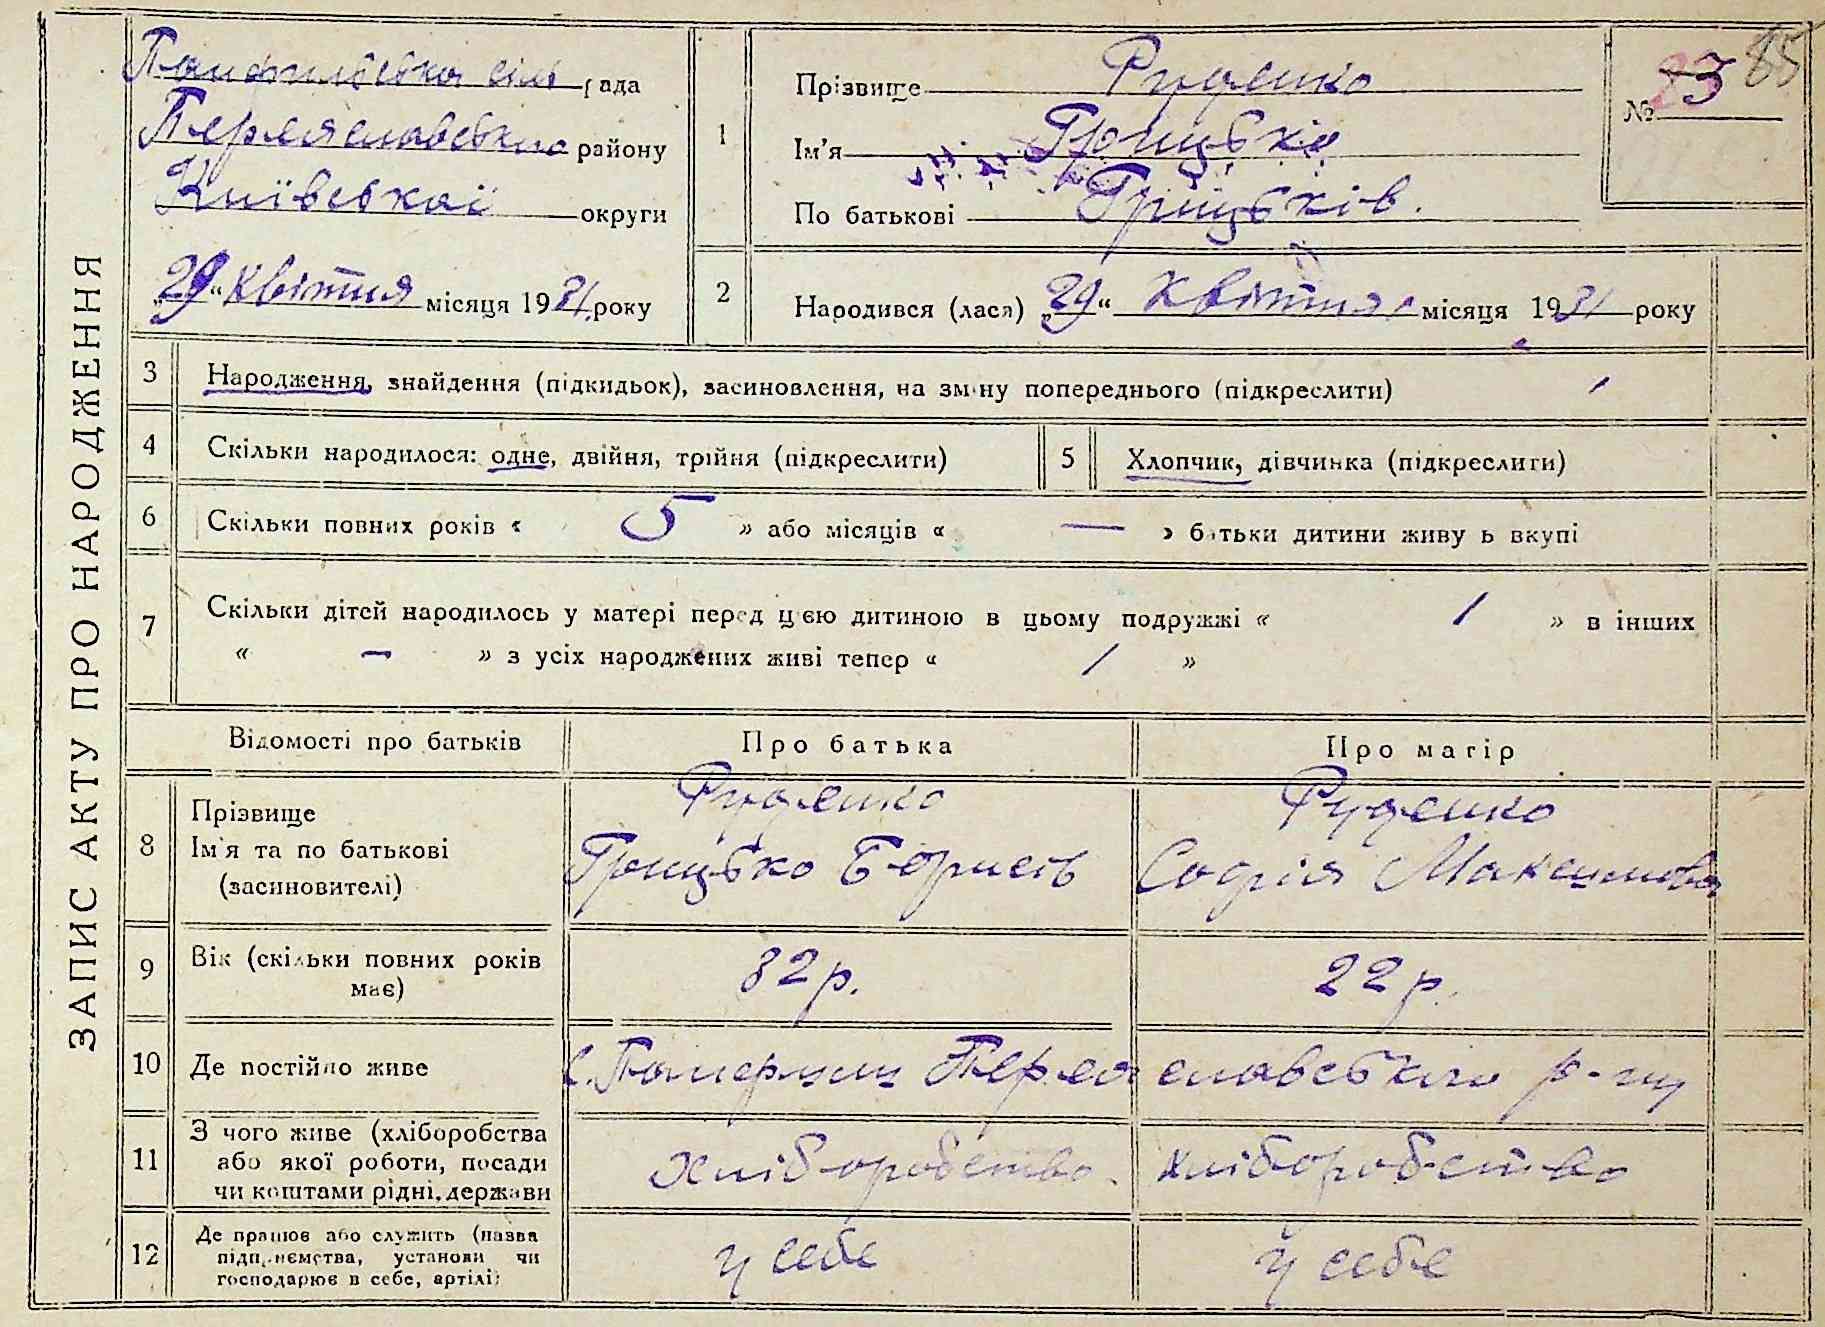 ЗАПИС АКТУ ПРО НАРОДЖЕННЯ
Панфилівська сіль рада
Переяславського району
Київської округи
„29“ квітня місяця 1931 року
1
Прізвище Руденко
Ім'я Грицько
По батькові Грицьків.
№ 85
2 Народився (лася) „29“ Квітня місяця 1931 року
3 Народження, знайдення (підкидьок), засиновлення, на зміну попереднього (підкреслити)
4 Скільки народилося: одне, двійня, трійня (підкреслити) 5 Хлопчик, дівчинка (підкреслити)
6 Скільки повних років « 5 » або місяців « — » батьки дитини живуть вкупі
7 Скільки дітей народилось у матері перед цією дитиною в цьому подружжі « 1 » в інших
« — » з усіх народжених живі тепер « 1 »
Відомості про батьків Про батька Про матір
8 Прізвище
Ім'я та по батькові
(засиновителі)
Руденко
Грицько Борисів
Руденко
Софія Максимова
9 Вік (скільки повних років має) 32 р. 22 р.
10 Де постійно живе с. Переяславського р-ну
11 З чого живе (хліборобства
або якої роботи, посади
чи коштами рідні, держави
Хліборобство. хліборобство
12 Де працює або служить (назва
підприємства, установи чи
господарює в себе, артілі)
у себе у себе